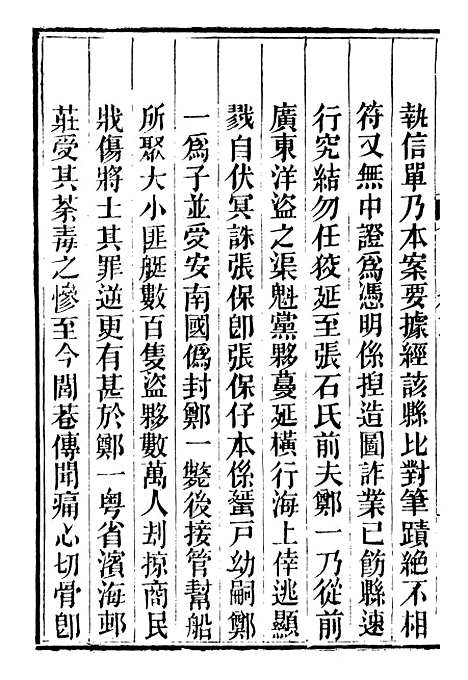 執信單乃本案要據經該縣比對筆蹟絕不相
符又無中證爲憑明係揑造圖詐業已飭縣速
行究結勿任狡延至張石氏前夫鄭一乃從前
廣東洋盜之渠魁黨夥蔓延橫行海上倖逃顯
戮自伏冥誅張保卽張保仔本係蜑戸幼嗣鄭
一爲子並受安南國僞封鄭一斃後接管幫船
所聚大小匪艇數百隻盜夥數萬人刦掠商民
戕傷將士其罪逆更有甚於鄭一粤省濱海邨
莊受其荼毒之慘至今閭巷傳聞痛心切骨卽